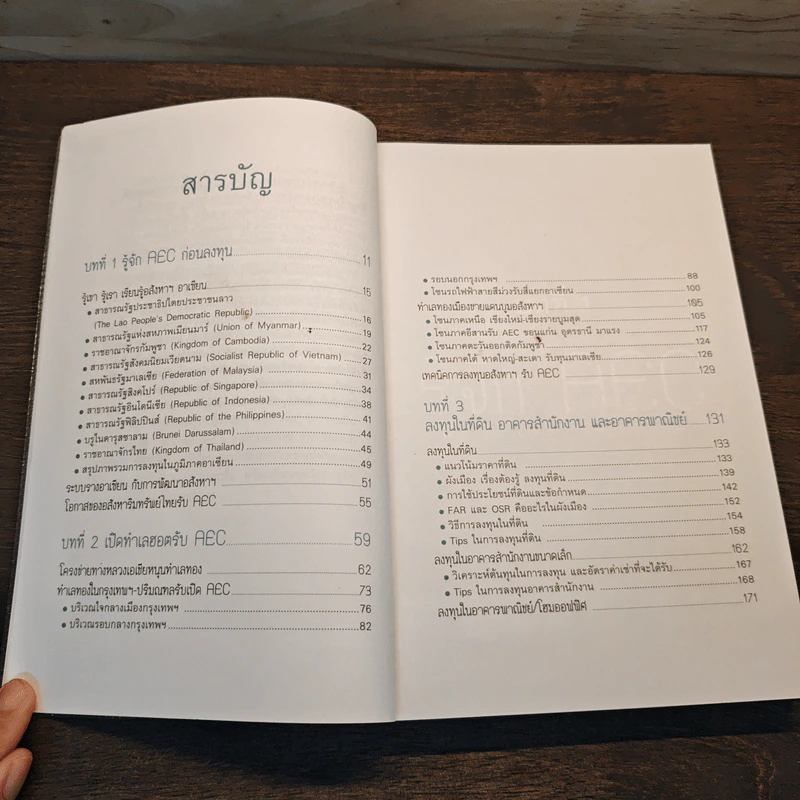 สารบัญ
บทที่ 1 รู้จัก AEC ก่อนลงทุน 11
รู้เขา รู้เรา เรียนรู้อสังหาฯ อาเซียน 15
• สาธารณรัฐประชาธิปไตยประชาชนลาว
(The Lao People's Democratic Republic) 16
• สาธารณรัฐแห่งสหภาพเมียนมาร์ (Union of Myanmar) 19
• ราชอาณาจักรกัมพูชา (Kingdom of Cambodia) 22
• สาธารณรัฐสังคมนิยมเวียดนาม (Socialist Republic of Vietnam) 27
• สหพันธรัฐมาเลเซีย (Federation of Malaysia) 31
• สาธารณรัฐสิงคโปร์ (Republic of Singapore) 34
• สาธารณรัฐอินโดนีเซีย (Republic of Indonesia) 38
• สาธารณรัฐฟิลิปปินส์ (Republic of the Philippines) 41
• บรูไนดารุสซาลาม (Brunei Darussalam) 44
• ราชอาณาจักรไทย (Kingdom of Thailand) 45
• สรุปภาพรวมการลงทุนในภูมิภาคอาเซียน 49
ระบบรางอาเซียน กับการพัฒนาอสังหาฯ 51
โอกาสของอสังหาริมทรัพย์ไทยรับ AEC 55
บทที่ 2 เปิดทำเลฮอตรับ AEC 59
โครงข่ายทางหลวงเอเชียหนุนทำเลทอง 62
ทำเลทองในกรุงเทพฯ-ปริมณฑลรับเปิด AEC 73
• บริเวณใจกลางเมืองกรุงเทพฯ 76
• บริเวณรอบกลางกรุงเทพฯ 82
• รอบนอกกรุงเทพฯ 88
• โซนรถไฟฟ้าสายสีม่วงรับสี่แยกอาเซียน 100
ทำเลทองเมืองชายแดนบูมอสังหาฯ 105
• โซนภาคเหนือ เชียงใหม่-เชียงรายบูมสุด 105
• โซนภาคอีสานรับ AEC ขอนแก่น อุดรธานี มาแรง 117
• โซนภาคตะวันออกติดกัมพูชา 124
• โซนภาคใต้ หาดใหญ่-สะเดา รับทุนมาเลเซีย 126
เทคนิคการลงทุนอสังหาฯ รับ AEC 129
บทที่ 3
ลงทุนในที่ดิน อาคารสำนักงาน และอาคารพาณิชย์ 131
ลงทุนในที่ดิน 133
• แนวโน้มราคาที่ดิน 133
• ผังเมือง เรื่องต้องรู้ ลงทุนที่ดิน 139
• การใช้ประโยชน์ที่ดินและข้อกำหนด 142
• FAR และ OSR คืออะไรในผังเมือง 152
• วิธีการลงทุนในที่ดิน 154
• Tips ในการลงทุนที่ดิน 158
ลงทุนในอาคารสำนักงานขนาดเล็ก 162
• วิเคราะห์ต้นทุนในการลงทุน และอัตราค่าเช่าที่จะได้รับ 167
• Tips ในการลงทุนอาคารสำนักงาน 168
ลงทุนในอาคารพาณิชย์/โฮมออฟฟิศ 171